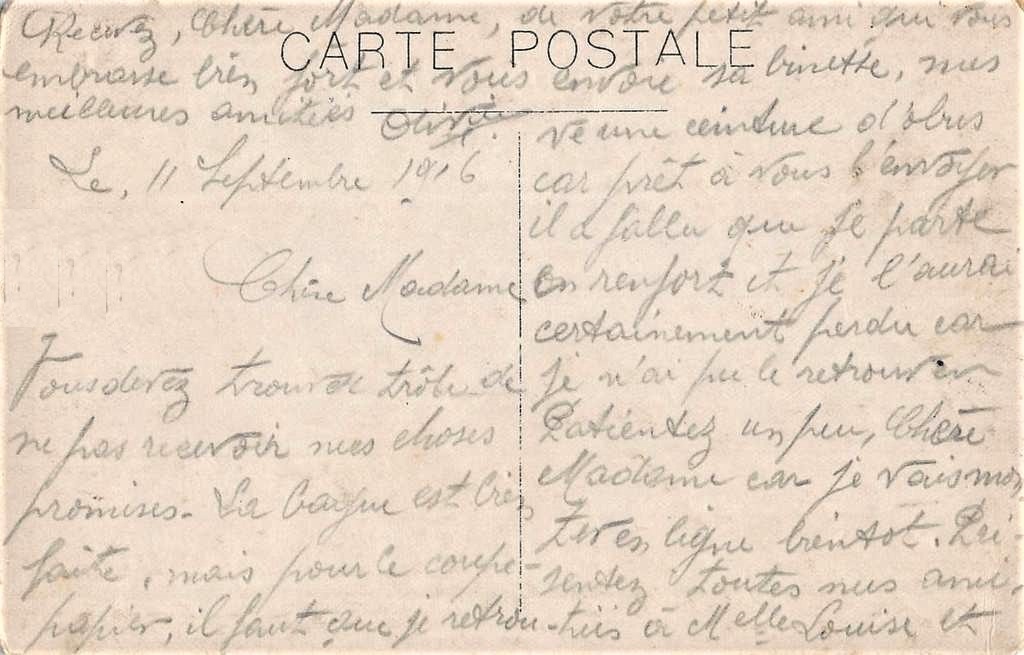 CARTE POSTALE
Le, 11 Septembre 1916
Chère Madame
Vous devez trouver drôle de
ne pas recevoir mes choses
promises. La bague est bien
faite, mais pour le coupe
papier, il faut que je retrou-
ve une ceinture d'obus
car prêt à vous l'envoyer
il a fallu que je parte
en renfort et je l'aurai
certainement perdu car
je n'ai pu le retrouver
Patientez un peu, Chère
Madame car je vais mon
ter en ligne bientôt. Pré-
sentez toutes mes ami-
tiés à Melle Louise et
Recevez, Chère Madame, de votre petit ami qui vous
embrasse bien fort et vous envoie sa binette, mes
meilleures amitiés